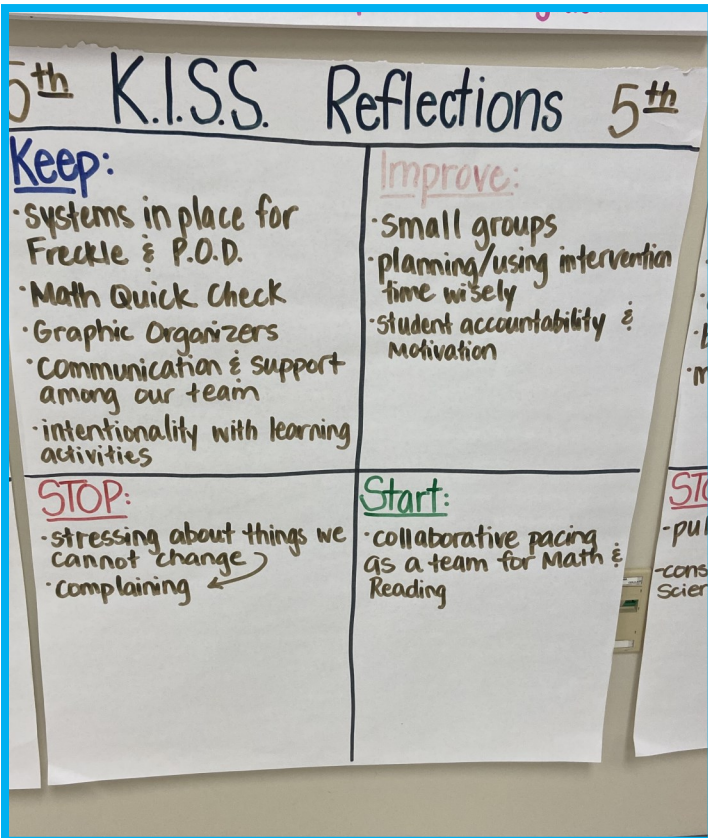 5th K.I.S.S. Reflections 5th
Keep:
·systems in place for
Freckle & P.O.D.
·Math Quick Check
·Graphic Organizers
·Communication & support
among our team
·intentionality with learning
activities
Improve:
·small groups
·planning/using intervention
time wisely
·student accountability &
Motivation
STOP:
·stressing about things we
cannot change
·complaining
Start:
·collaborative pacing
as a team for Math &
Reading